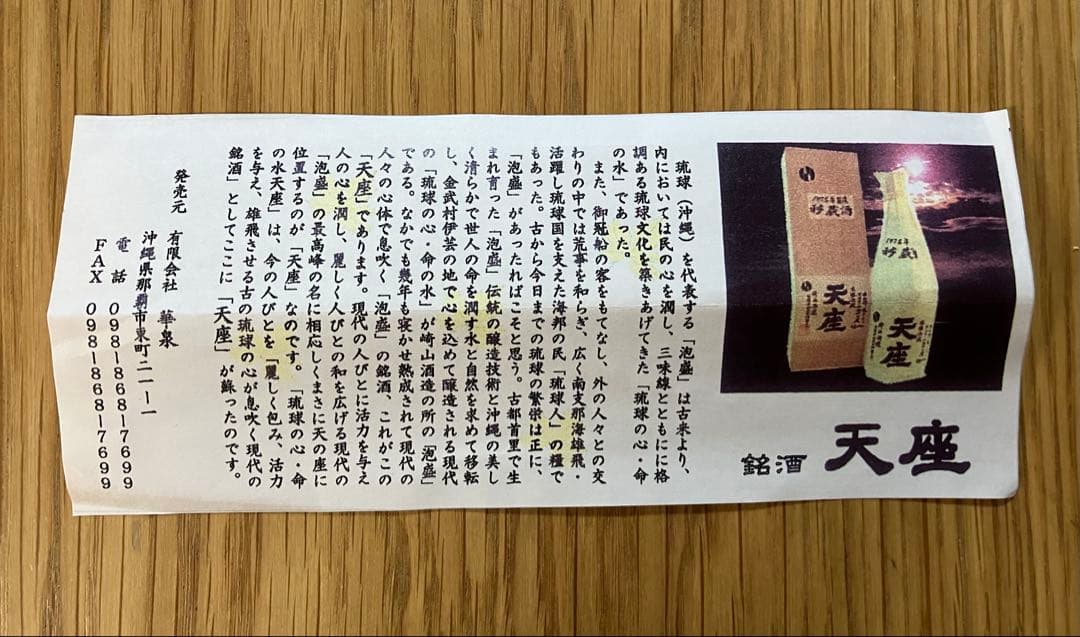 銘酒 天座
琉球（沖縄）を代表する「泡盛」は古来より、
内においては民の心を潤し、三味線とともにに格
調ある琉球文化を築きあげてきた「琉球の心・命
の水」であった。
また、御冠船の客をもてなし、外の人々との交
わりの中では荒事を和らぎ、広く南支那海雄飛・
活躍し琉球国を支えた海邦の民「琉球人」の糧で
もあった。古から今日までの琉球の繁栄は正に、
「泡盛」があったればこそと思う。古都首里で生
まれ育った「泡盛」伝統の醸造技術と沖縄の美し
く清らかで世人の命を潤す水と自然を求めて移転
し、金武村伊芸の地で心を込めて醸造される現代
の「琉球の心・命の水」が崎山酒造の所の「泡盛」
である。なかでも幾年も寝かせ熟成されて現代の
人々の心体で息吹く「泡盛」の銘酒、これがこの
「天座」であります。現代の人びとに活力を与え
人の心を潤し、麗しく人びとの和を広げる現代の
「泡盛」の最高峰の名に相応しくまさに天の座に
位置するのが「天座」なのです。「琉球の心・命
の水天座」は、今の人びとを「麗しく包み、活力
を与え、雄飛させる古の琉球の心が息吹く現代の
銘酒」としてここに「天座」が蘇ったのです。
発売元 有限会社 華泉
沖縄県那覇市東町二一一一
電話 098-868-7699
FAX 098-868-7699
1976年
秘蔵酒
天座
1976年
秘蔵
天座